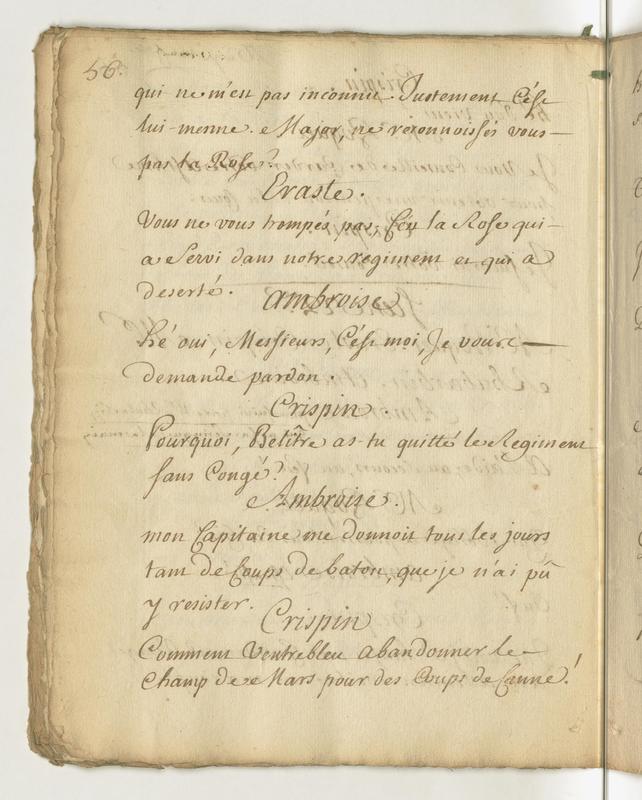 56.
qui ne m'est pas inconnu. Justement C'ést
lui-mesme. Major, ne reconnoissés vous
pas la Rose?
Eraste.
Vous ne vous trompés pas, C'ést la Rose qui
a Servi dans notre regiment et qui a
deserté.
Ambroise
hé oui, Messieurs, C'ést moi, Je vous
demande pardon.
Crispin.
Pourquoi, Belître as-tu quitté le Regiment
sans Congé?
Ambroise.
mon Capitaine me donnoit tous les jours
tant de Coups de baton, que je n'ai pû
y resister.
Crispin
Comment Ventrebleu abandonner le
Champ de Mars pour des Coups de Canne!